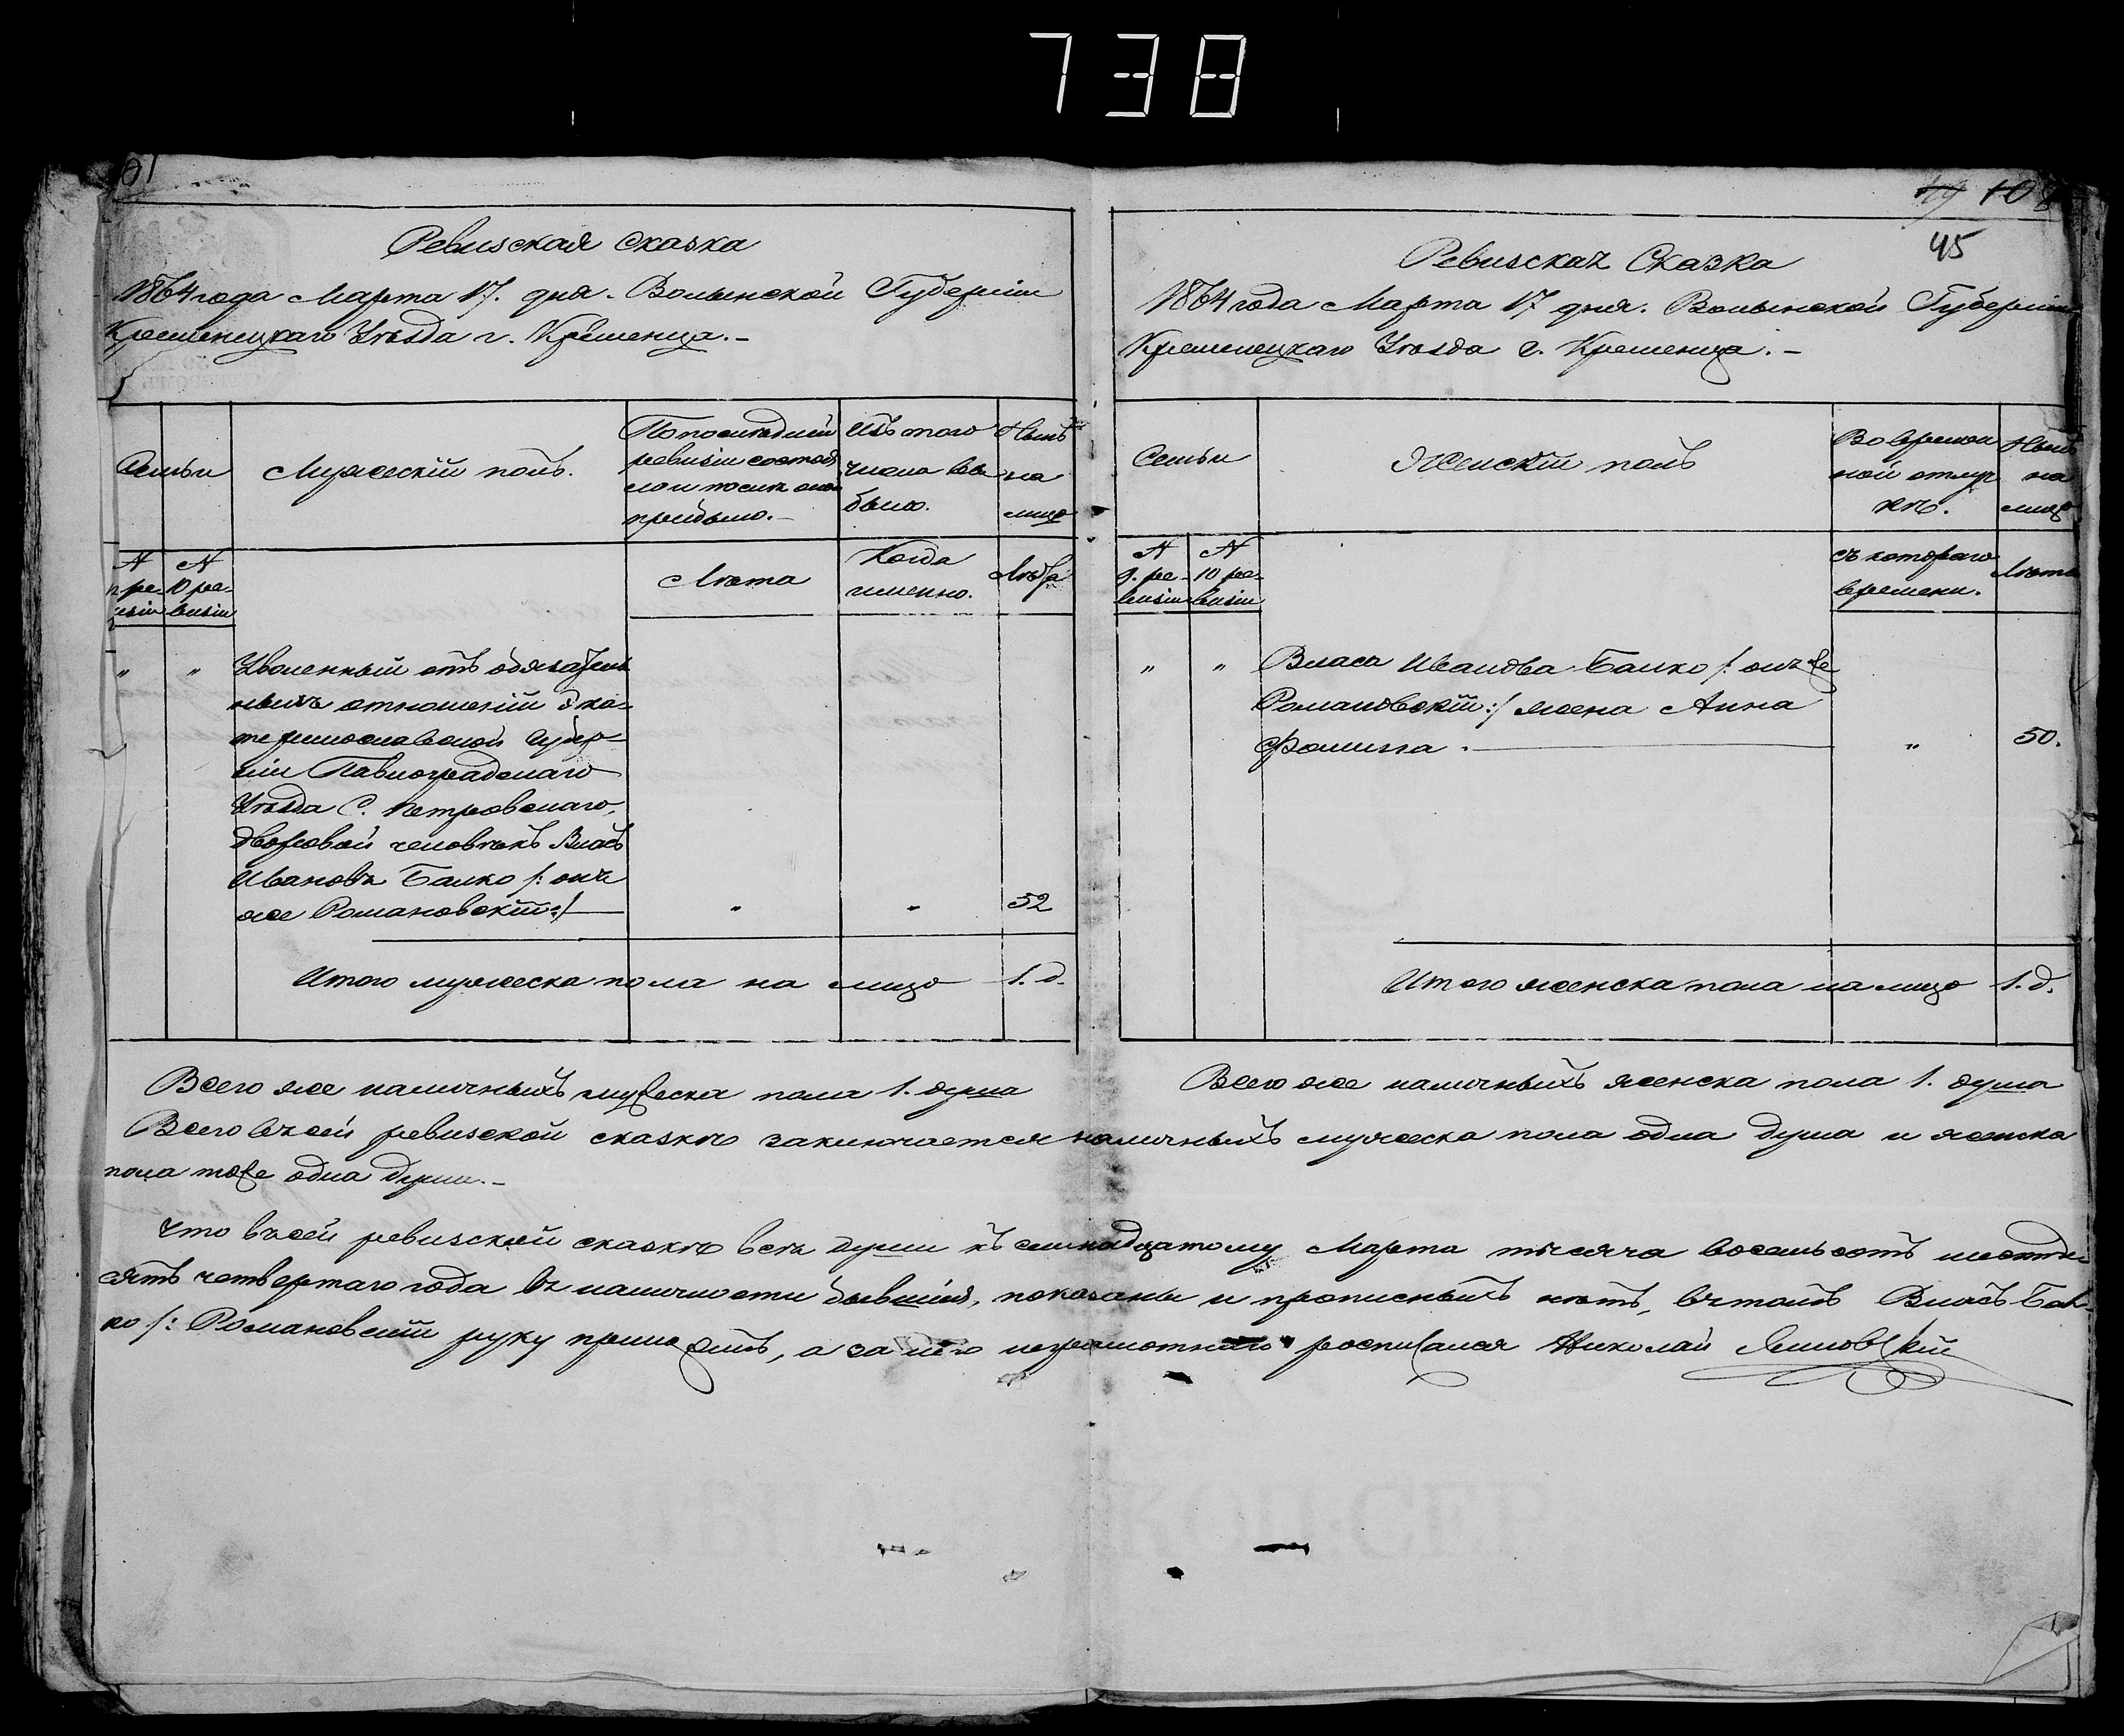 738
Ревизская сказка
1864 года Марта 17. дня. Волынской Губерніи
Кременецкаго Уѣзда г. Кременца.-
Семьи
Мужескій полъ.
По последней
ревизіи состоя
ло и послѣ оной
прибыло.-
Изъ того
числа вы
было.
Нынѣ
на
лицо
№
ревизіи
№
10 ре-
визіи
Лѣта
Когда
именно.
Лѣта
„ „ Уволенный отъ обязатель
ныхъ отношеній Ека-
теринославской Губер-
ніи Павлоградскаго
Уѣзда С. Петровскаго,
дворовой человѣкъ Власъ
Ивановъ Балко /: онъ
же Романовскій :/ „ „ 52
Итого мужеска пола на лицо 1. д.
Всего же наличныхъ мужеска пола 1. душа
49 108
45
Ревизская Сказка
1864 года Марта 17 дня. Волынской Губерніи
Кременецкаго Уѣзда г. Кременца.-
Семьи
Женскій полъ
Во времен
ной отлуч
кѣ.
Нынѣ
на
лицо
№
9. ре-
визіи
№
10 ре-
визіи
съ котораго
времени.
Лѣта
„ „ Власа Иванова Балко /: онъ же
Романовскій :/ жена Анна
Фомина. „ 50.
Итого женска пола на лицо 1. д.
Всего же наличныхъ женска пола 1. душа
Всего въ сей ревизской сказкѣ заключается наличныхъ мужеска пола одна душа и женска
пола тоже одна душа.-
Что въ сей ревизской сказкѣ всѣ души къ семнадцатому Марта тысяча восемьсотъ шестьде-
сятъ четвертаго года въ наличности бывшія, показаны и прописныхъ нѣтъ, въ томъ Власъ Бал-
ко /: Романовскій руку приложилъ, а за него неграмотнаго росписался Николай